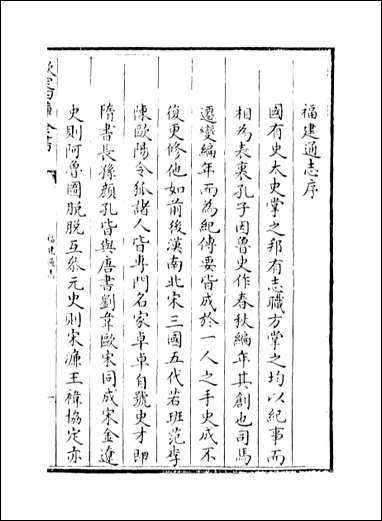 福建通志序
國有史太史掌之邦有志職方掌之均以紀事而
相為表裏孔子因魯史作春秋編年其創也司馬
遷變編年而為紀傳要皆成於一人之手史成不
復更修他如前後漢南北宋三國五代若班范李
陳歐陽令狐諸人皆專門名家卓卓自號史才即
隋書長孫顏孔皆與唐書劉韋歐宋同成宋金遼
史則阿魯圖脫脫互叅元史則宋濂王禕協定亦
欽定四庫全書
福建通志
一